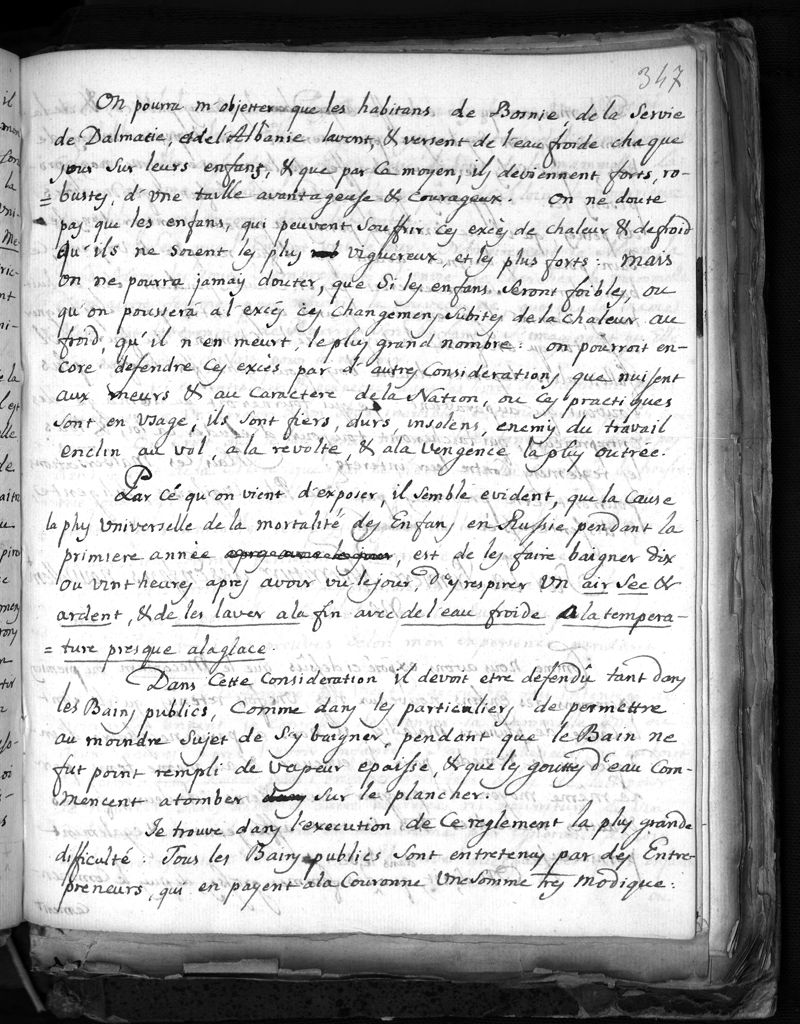 347
On pourra m'objetter que les habitans de Bosnie, de la Servie
de Dalmatie, et del'Albanie lavent, & versent de l'eau froide chaque
jour sur leurs enfans, & que par ca moyen, ils deviennent forts, ro-
= bustes, d'une taille avantageuse & courageux. On ne doute
pas que les enfans, qui peuvent souffrir ces excès de chaleur & defroid
qu'ils ne soient les plus vigueureux, et les plus forts: mais
on ne pourra jamais douter, que si les enfans seront foibles, ou
qu'on poussera al'excès ces changemens subites de la chaleur au
froid, qu'il n'en meurt, le plus grand nombre: on pourroit en-
core defendre ces excès par d'autres considerations que nuisent
aux meurs & au caractere dela Nation, ou ces practiques
sont en usage; ils sont fiers, durs, insolens, enemis du travail
enclin au vol, ala revolte, & ala vengence la plus outrée.
Par cé qu'on vient d'exposer, il semble evident, que la cause
la plus universelle de la mortalité des Enfans en Russie pendant la
primiere année, est de les faire baigner dix
ou vint heures apres avoir vu le jour, d'y respirer un air sec &
ardent, & de les laver ala fin avec de l'eau froide a la tempera-
= ture presque alaglace.
Dans cette consideration il devoit etre defendû tant dans
les Bains publics, comme dans les particuliers de permettre
au moindre sujet de s'y baigner, pendant que le Bain ne
fut point rempli de vapeur epaisse, & que les gouttes d'eau com-
mencent atomber sur le plancher.
Je trouve dans l'execution de ce reglement la plus grande
difficulté: Tous les Bains publics sont entretenus par des Entre-
preneurs, qui en payent ala Couronne une somme tres modique: